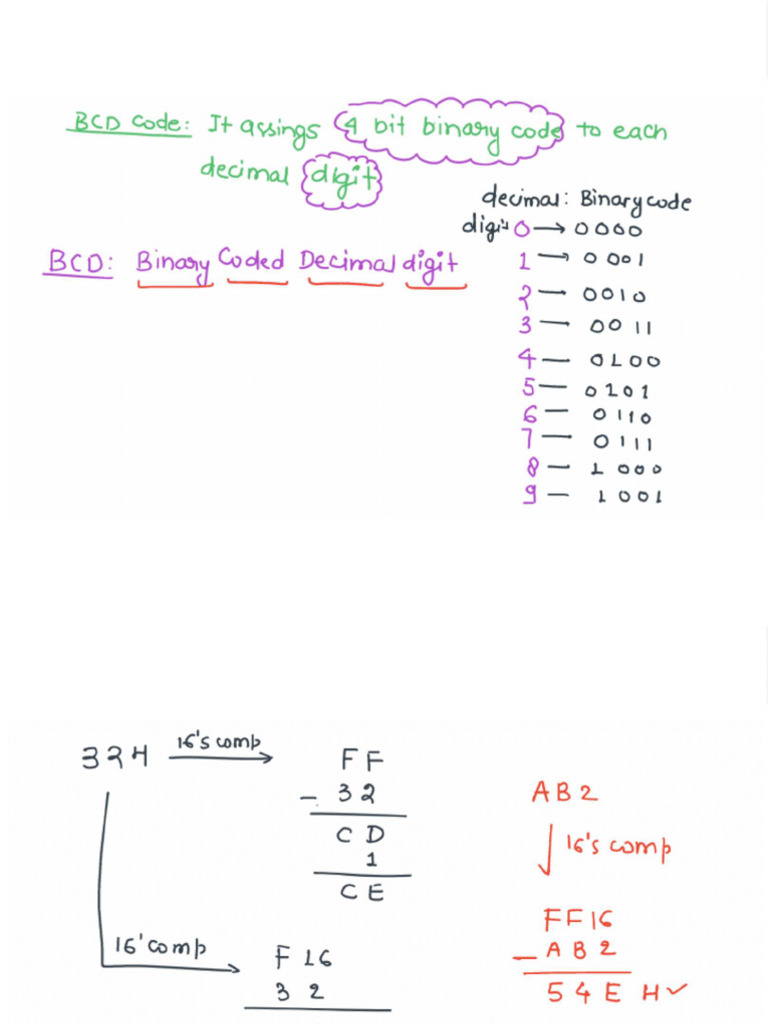 BCD Code: It assings 4 bit binary code to each
decimal digit
decimal: Binary code
digit 0 → 0000
BCD: Binary Coded Decimal digit
1 → 0001
2 — 0010
3 — 0011
4 — 0100
5 — 0101
6 — 0110
7 — 0111
8 — 1000
9 — 1001
32H 16's comp → FF
- 32
CD
1
CE
16' comp → F 16
3 2
AB2
↓ 16's comp
FF16
- AB2
54E H ✓